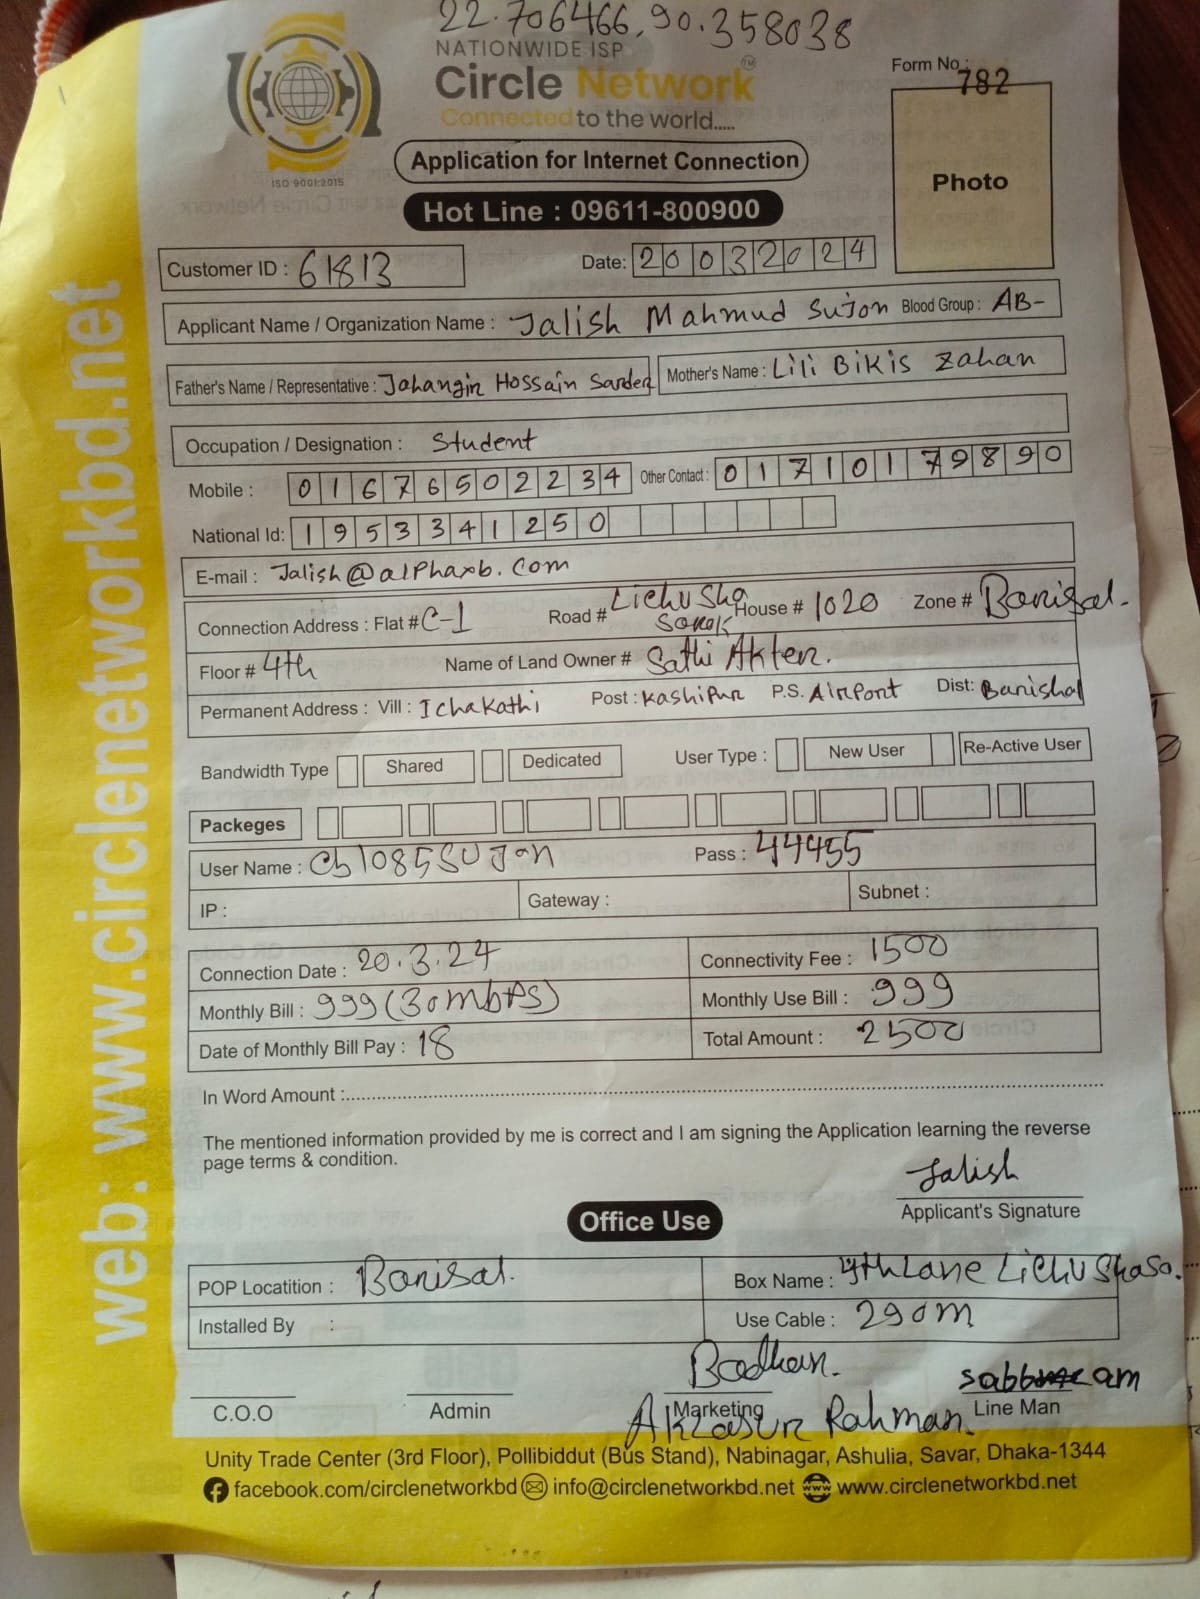 22.706466, 90.358038
NATIONWIDE ISP
Circle Network TM
Connected to the world.....
ISO 9001:2015
Form No : 782
Photo
Application for Internet Connection
Hot Line : 09611-800900
Customer ID : 61813 Date: 20032024
Applicant Name / Organization Name : Jalish Mahmud Sujon Blood Group : AB-
Father's Name / Representative : Jahangir Hossain Sarder Mother's Name : Lili Bikis Zahan
Occupation / Designation : Student
Mobile : 01676502234 Other Contact : 01710179890
National Id: 1953341250
E-mail : Jalish@alphaxb.com
Connection Address : Flat # C-1 Road # Lichu Sha Sarak House # 1020 Zone # Barisal.
Floor # 4th Name of Land Owner # Sathi Akter.
Permanent Address : Vill : Ichakathi Post : Kashipur P.S. Airport Dist: Barishal
Bandwidth Type Shared Dedicated User Type : New User Re-Active User
Packeges
User Name : Cb1085SUJan Pass : 44455
IP : Gateway : Subnet :
Connection Date : 20.3.24 Connectivity Fee : 1500
Monthly Bill : 999 (30mbps) Monthly Use Bill : 999
Date of Monthly Bill Pay : 18 Total Amount : 2500
In Word Amount :
The mentioned information provided by me is correct and I am signing the Application learning the reverse
page terms & condition.
Jalish
Applicant's Signature
Office Use
POP Locatition : Barisal. Box Name : 4th Lane Lichu Shaso.
Installed By : Use Cable : 290m
Badhan.
C.O.O Admin Marketing Line Man
Rahman.
Unity Trade Center (3rd Floor), Pollibiddut (Bus Stand), Nabinagar, Ashulia, Savar, Dhaka-1344
facebook.com/circlenetworkbd info@circlenetworkbd.net www www.circlenetworkbd.net
web: www.circlenetworkbd.net